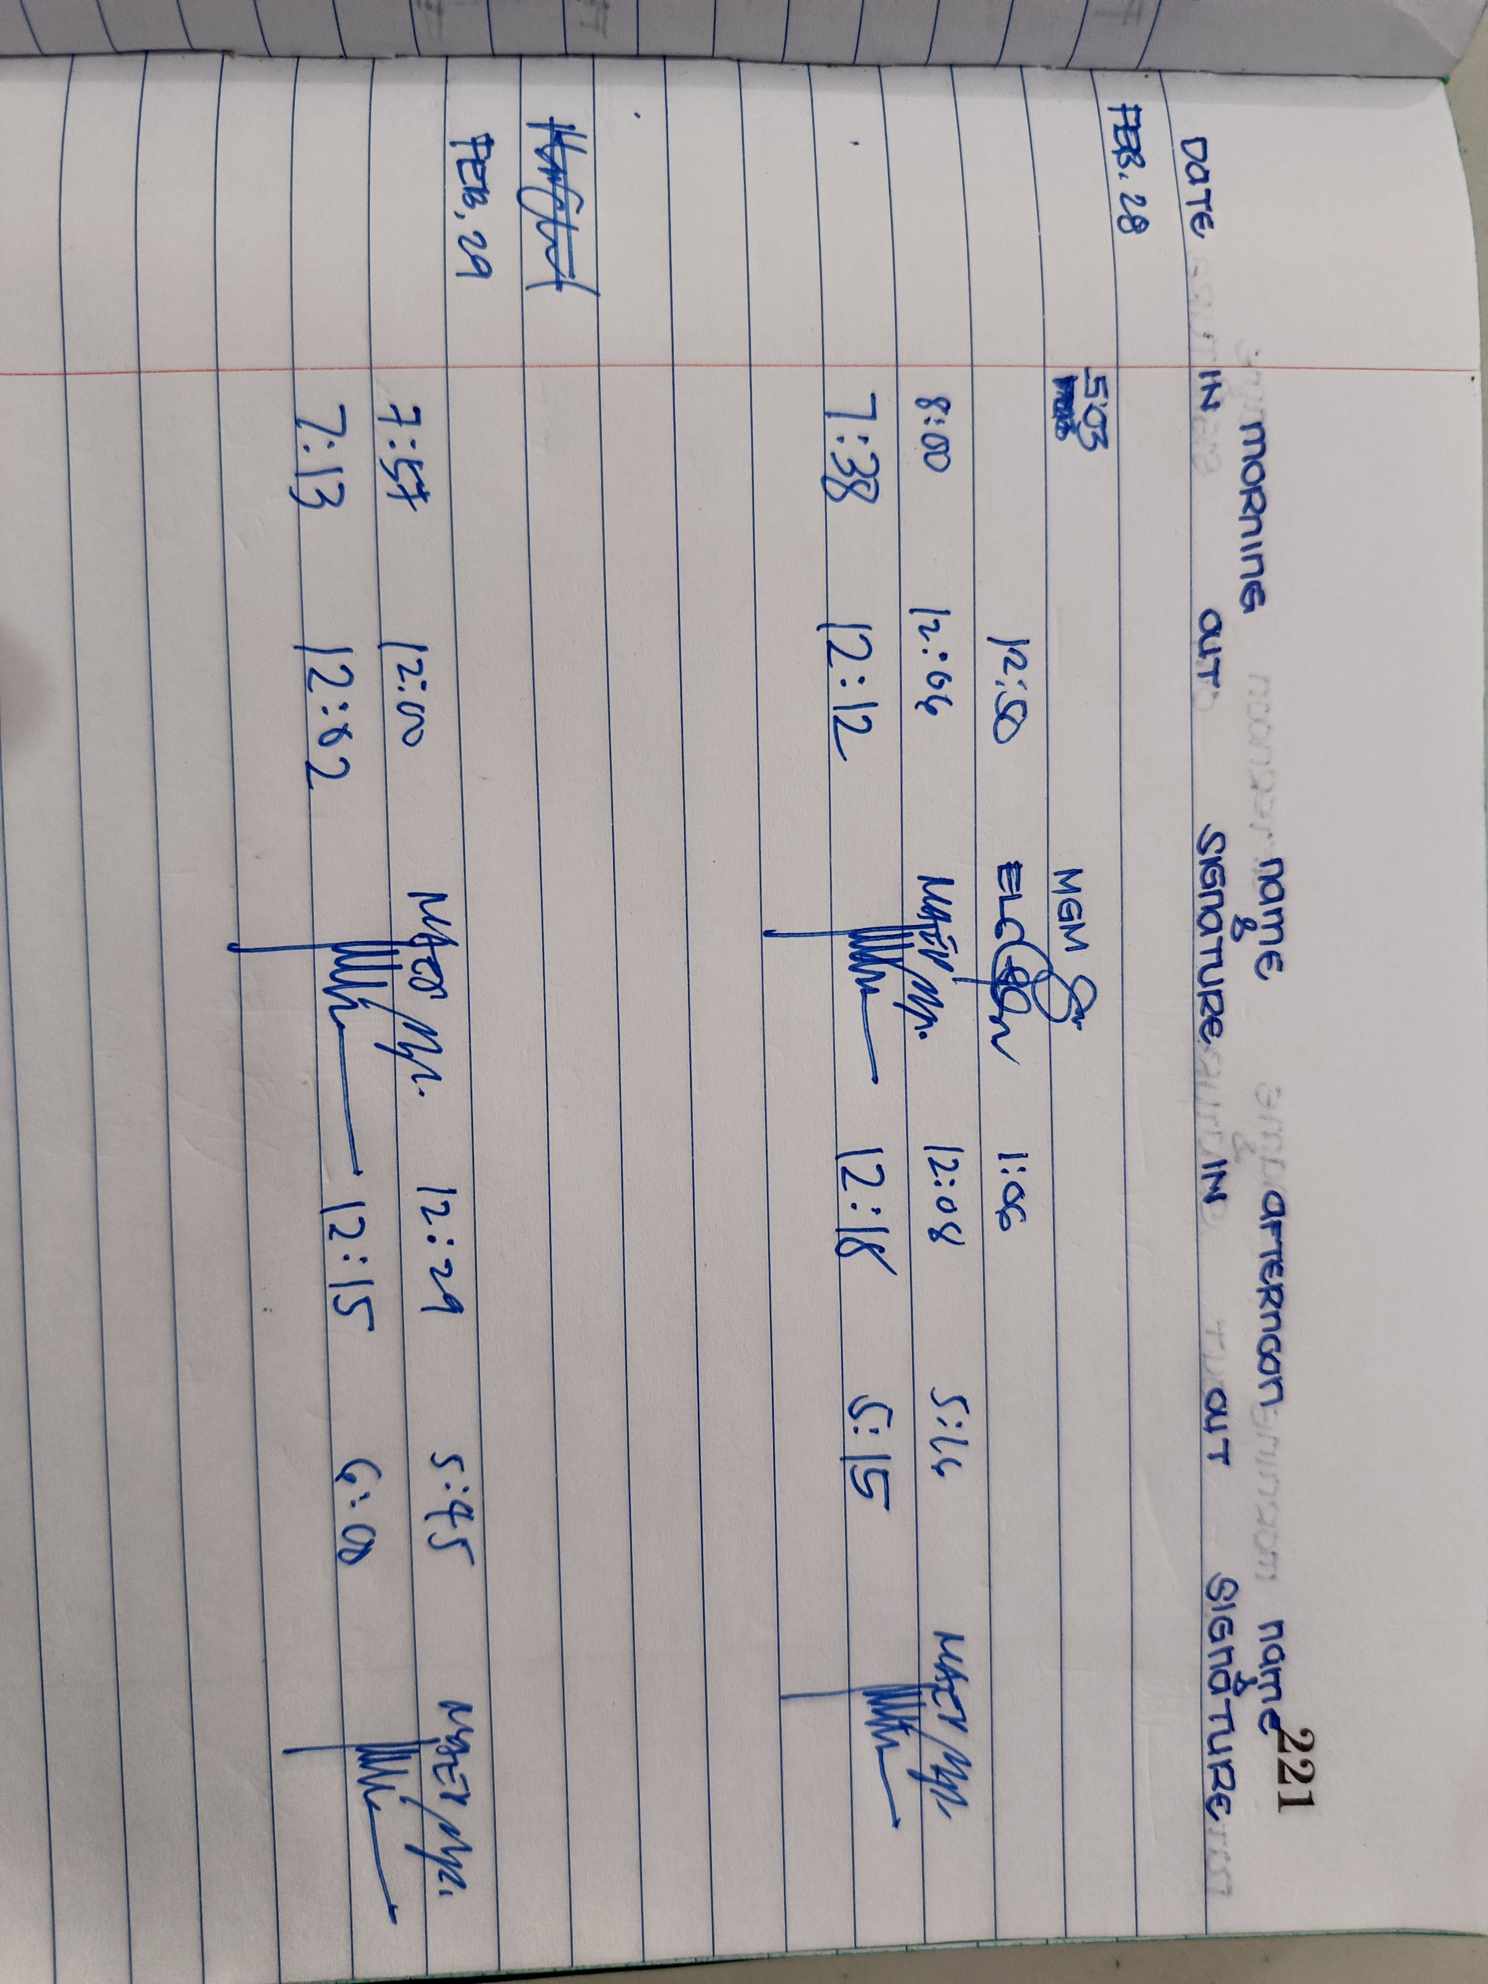 221
MORNING NAME AFTERNOON NAME
& &
DATE IN OUT SIGNATURE IN OUT SIGNATURE
FEB. 28
5:03 MGM
12:50 ELC 1:06
8:00 12:06 12:08 5:16
7:38 12:12 12:18 5:15
FEB. 29
7:57 12:00 12:29 5:45
7:13 12:02 12:15 6:00